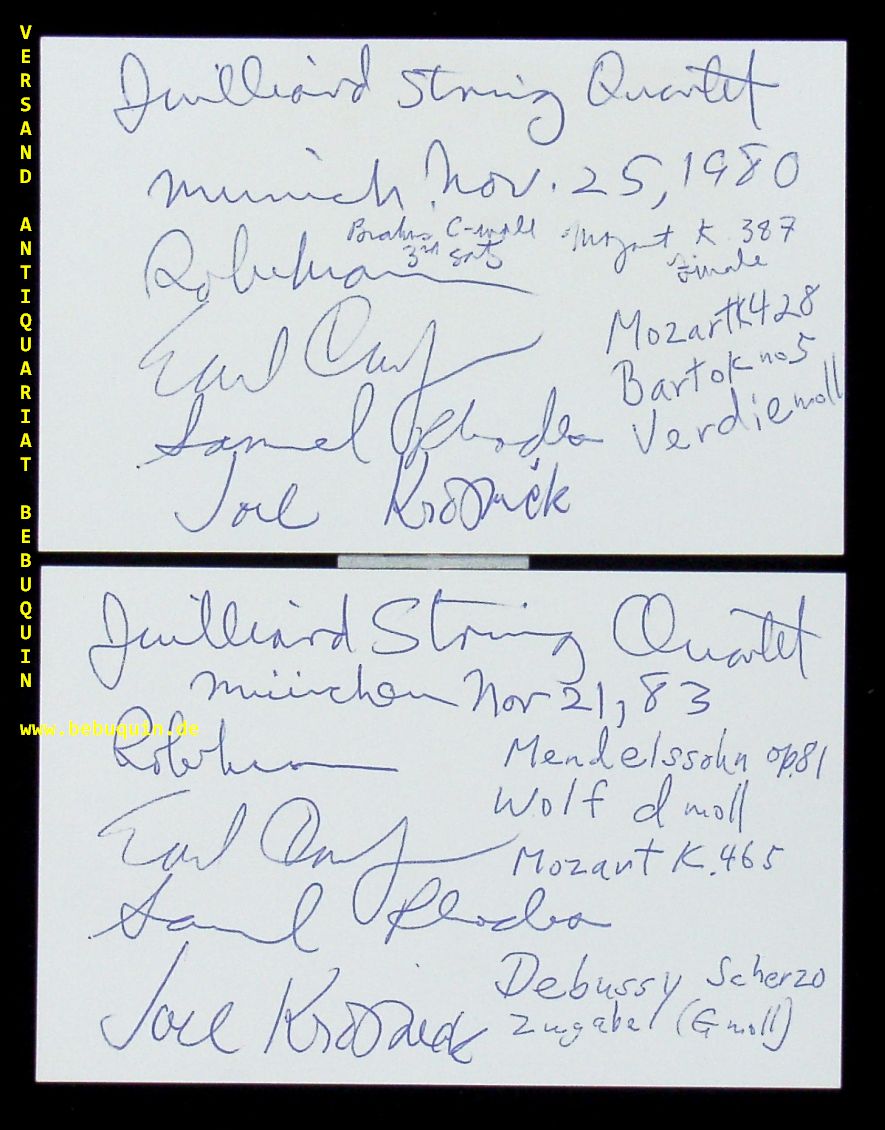 VERSAND ANTIQUARIAT BEBUQUIN
www.bebuquin.de
Juilliard String Quartet
Munich Nov. 25, 1980
Brahms C-moll
3rd Satz
Mozart K. 387
Finale
Robert Mann
Mozart K428
Earl Carlyss
Bartok no 5
Verdi e moll
Samuel Rhodes
Joel Krosnick
Juilliard String Quartet
München Nov 21, 83
Robert Mann
Mendelssohn op.81
Wolf d moll
Earl Carlyss
Mozart K.465
Samuel Rhodes
Debussy Scherzo
Joel Krosnick
Zugabe (G moll)